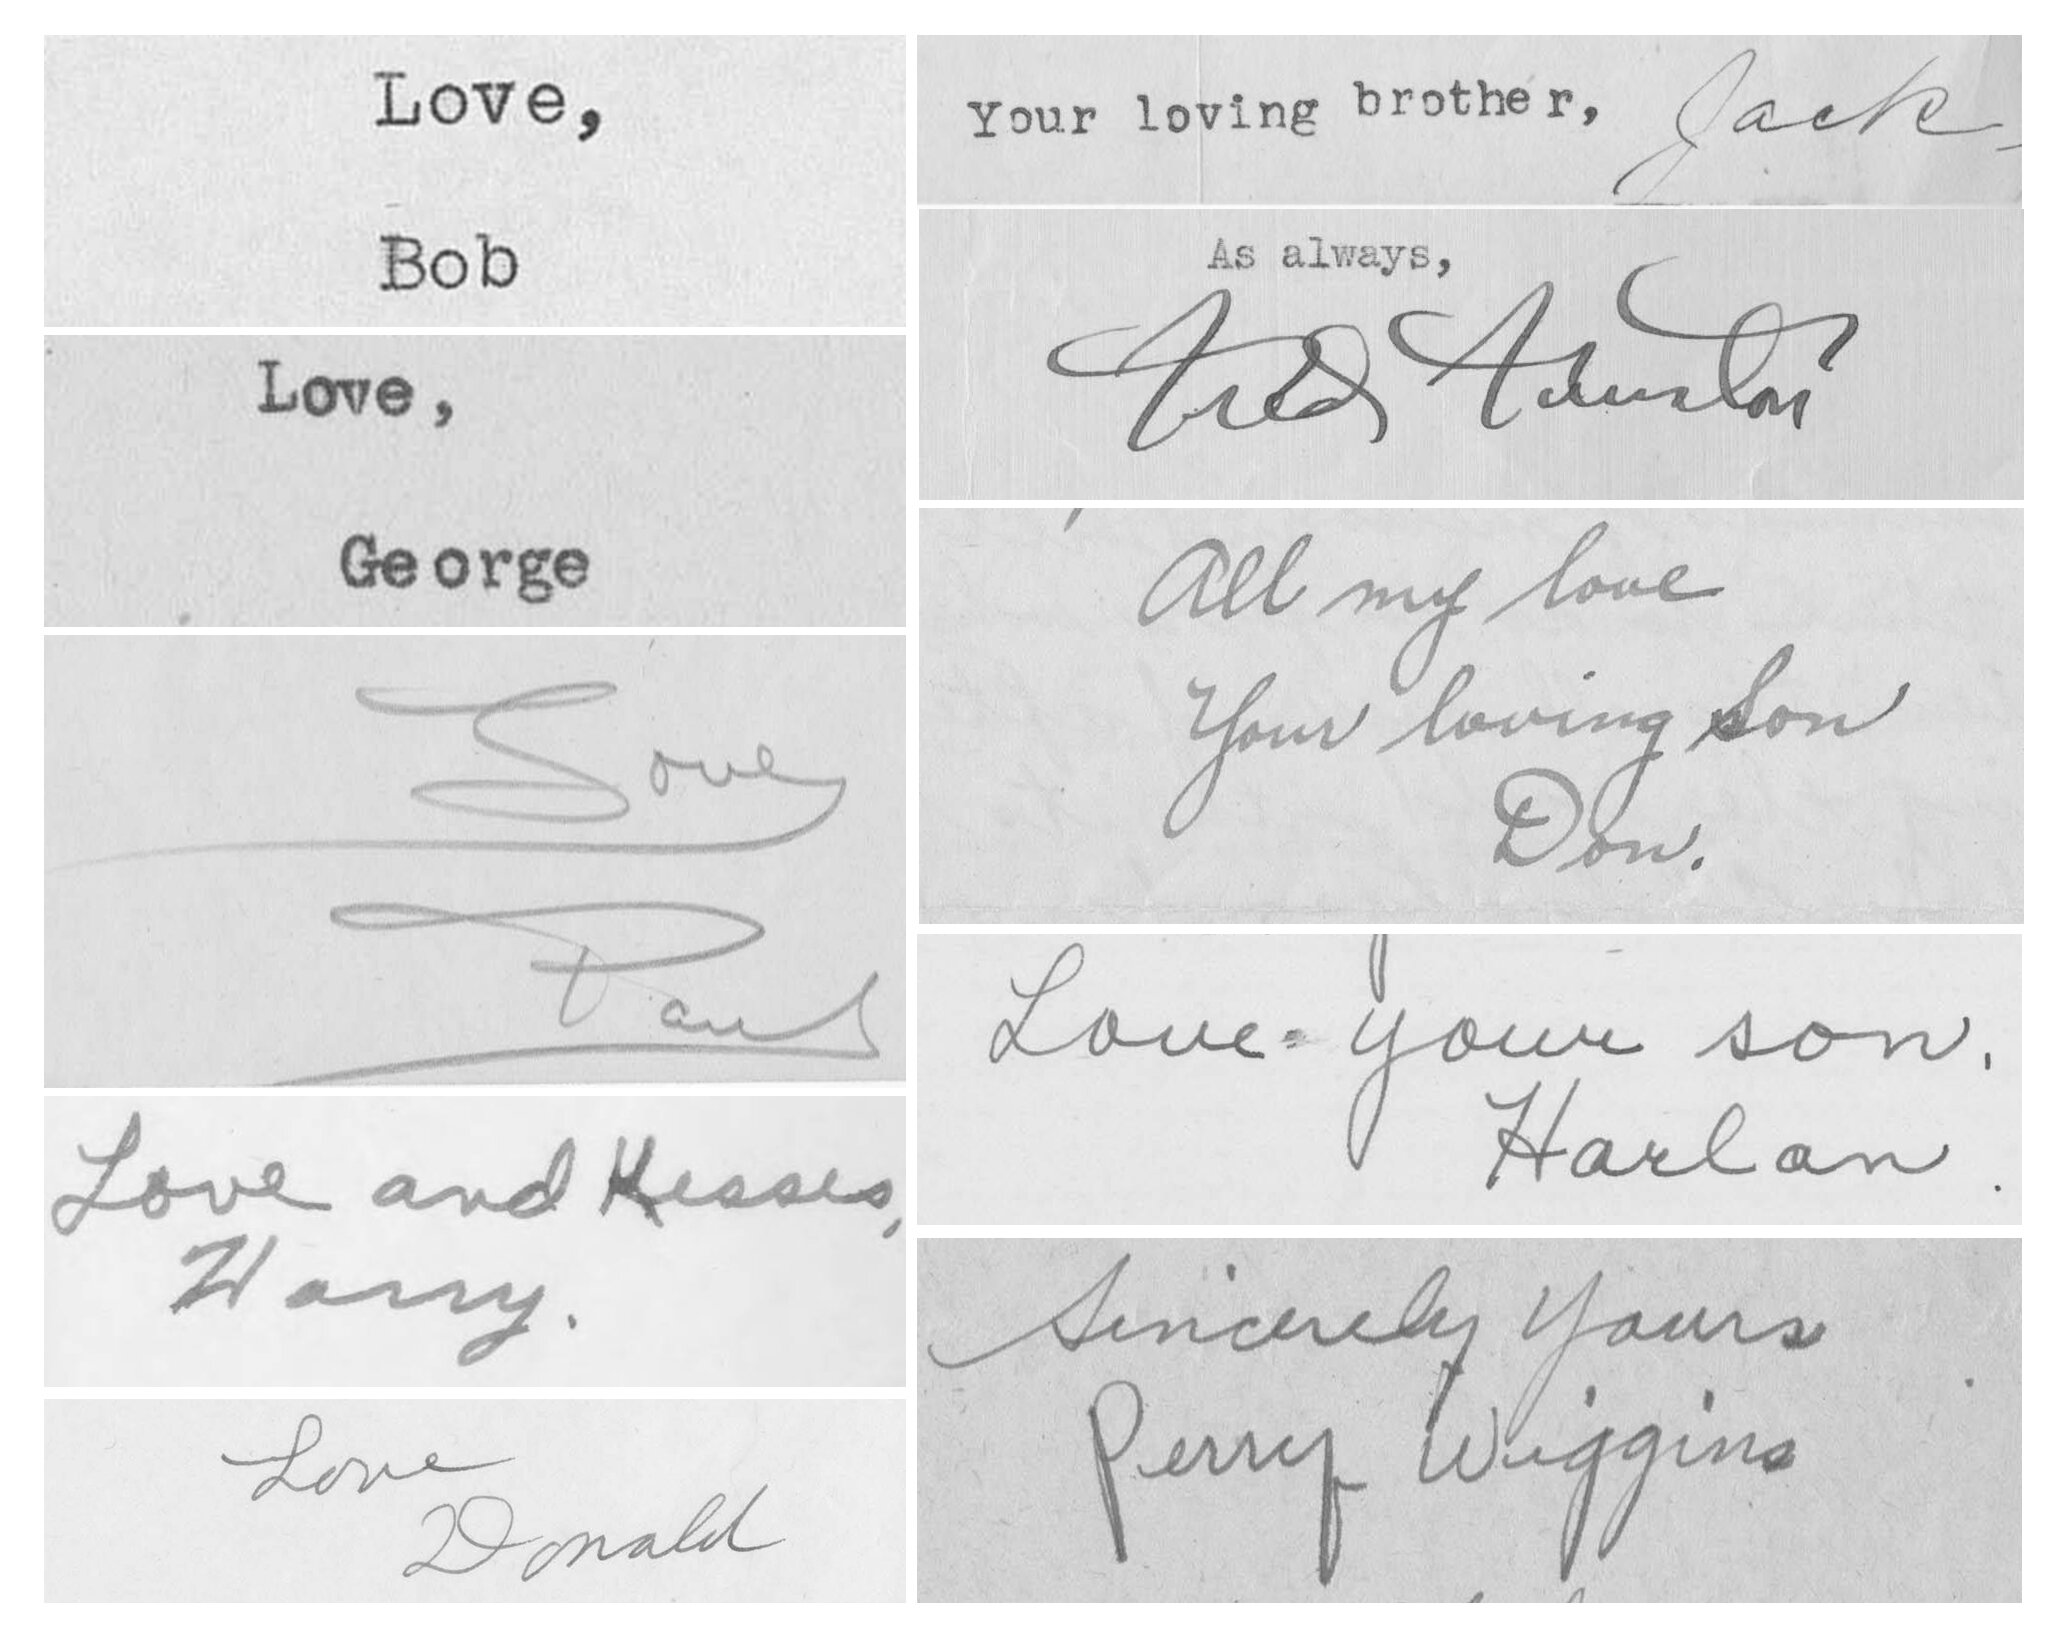 Love,
Bob
Love,
George
Love
Paul
Love and Kisses,
Harry.
Love
Donald
Your loving brother, Jack
As always,
Fred
All my love
Your loving Son
Don.
Love - your son.
Harlan.
Sincerely Yours
Perry Wiggins